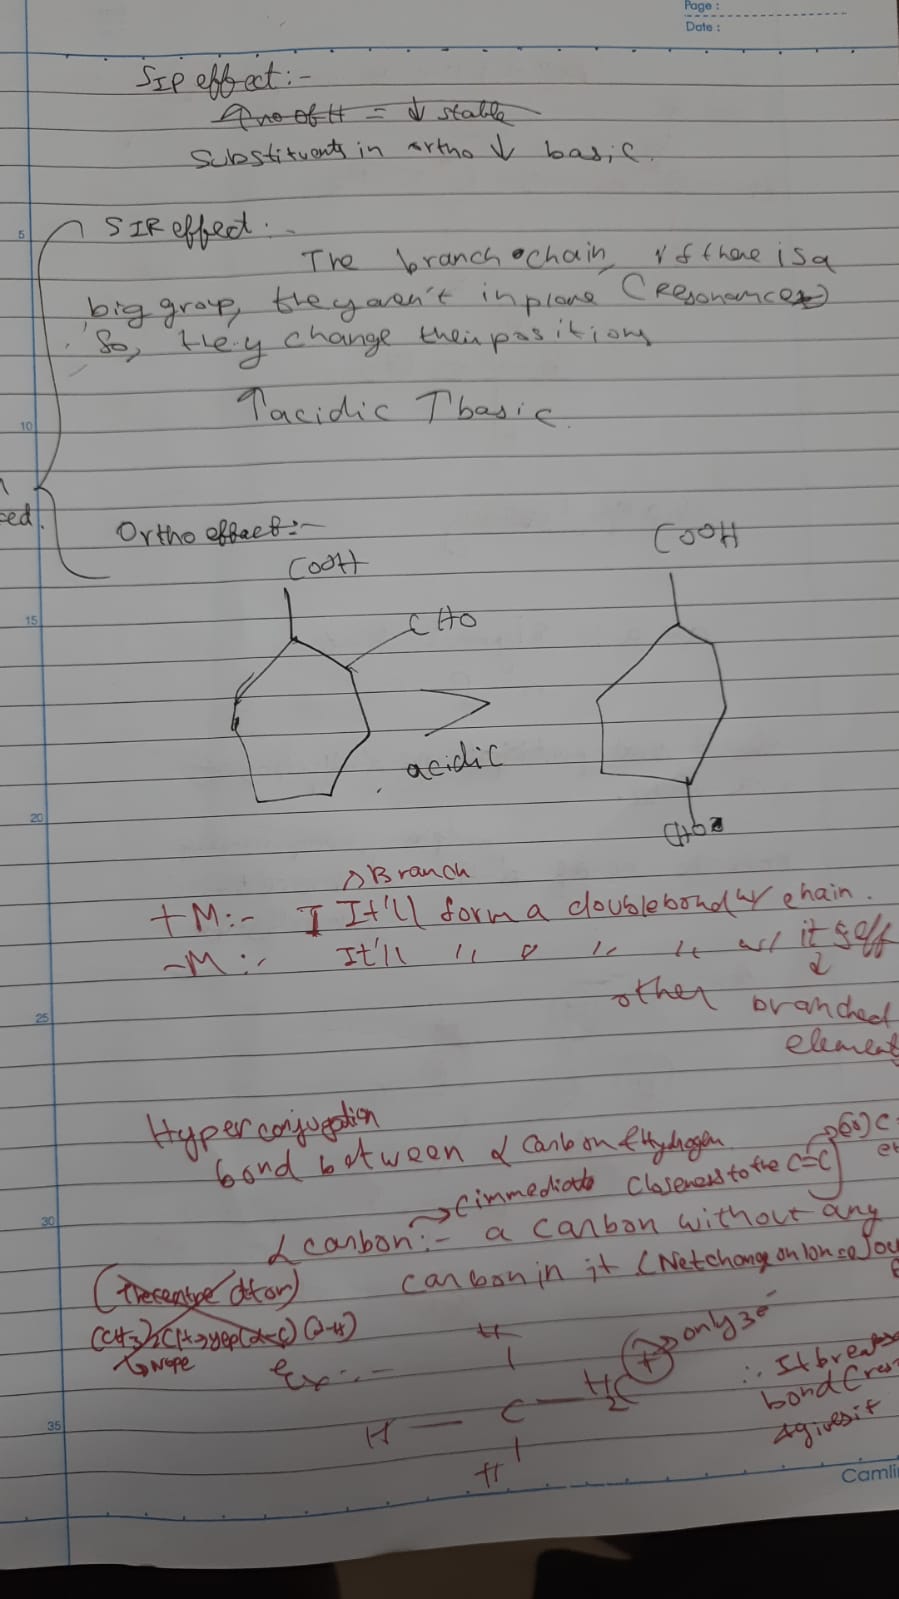 Page :
Date :
SIP effect :-
↑ no of H = ↓ stable
Substituents in ortho ↓ basic.
SIR effect :-
The branch chain, if there is a
big group, they aren't in plane (Resonance)
So, they change their positions
↑ acidic ↑ basic.
ced.
Ortho effect :-
COOH
COOH
CHO
>
acidic
CHO
Branch
+M :- It'll form a double bond w/ chain.
-M :- It'll " " " " w/ itself
other branched
element
Hyperconjugation
bond between α carbon & Hydrogen
(immediate closeness to the C=C)
α carbon :- a carbon without any
carbon in it (Net change on
(The centre atom)
Nope
Ex :-
H
H - C - H2C + only 3e-
H
∴ It breaks
bond
& gives it
5
10
15
20
25
30
35
Camli